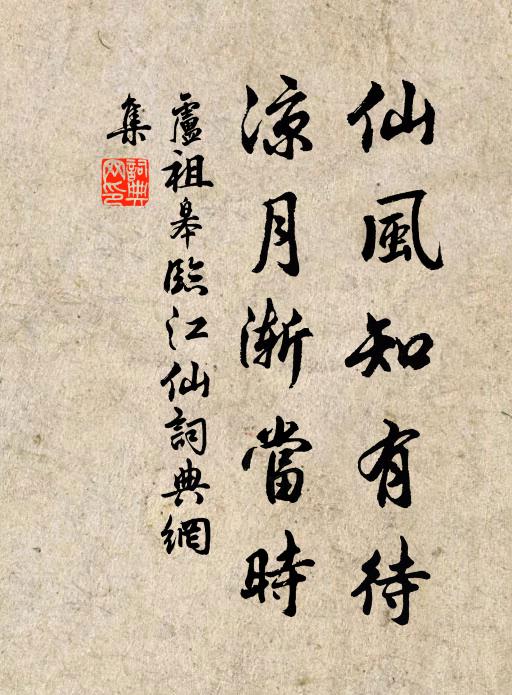 仙風知有待
涼月漸當時
盧祖皋臨江仙詞典網
集
詞典
网印